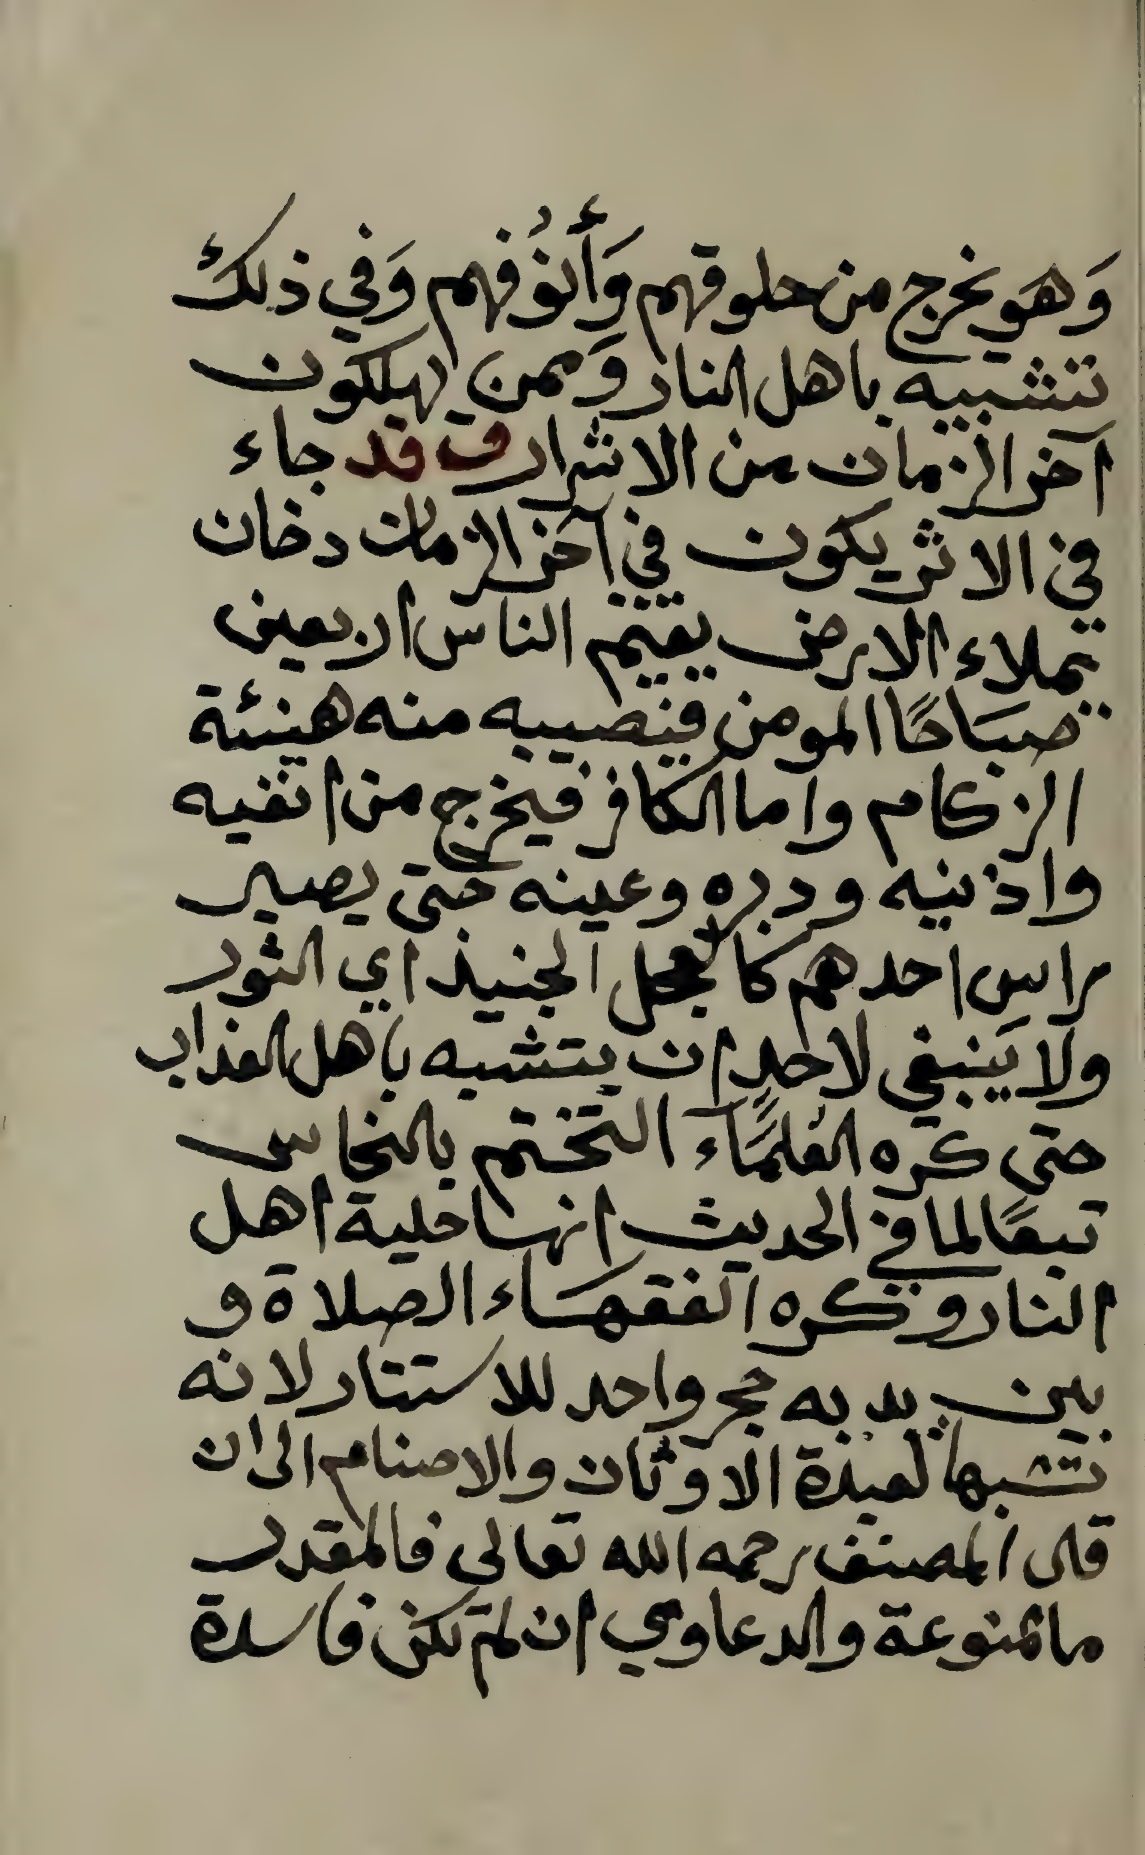 وَهو يخرج من حلوقهم وَأنوُفهم وَفي ذلك
تتشبيه باهل النار وَممن يهلكون
آخر الزمان من الاشرار وقد جاء
في الاثر يكون في آخر الزمان دخان
يملاء الارض يقيم الناس اربعين
صبَاحًا المومن فيصيبه منه هيئة
الزكام واما الكافر فيخرج من انفيه
واذنيه ودبره وعينه حتى يصير
راس احدهم كالعجل الجنيذ اي الثور
ولا يَنبغي لاحدٍ ان يتشبه باهل العذاب
حتى كره العُلمَاء التختم بالنحاس
تبعًا لما في الحديث انها حلية اهل
النار وكره الفقهاء الصلاة و
بين يديه حجر واحد للاستتار لانه
تشبها لعبدة الاوثان والاصنام الى ان
قال المصنف رحمه الله تعالى فالمقدر
ما ممنوعة والدعاوي ان لم تكن فاسدة